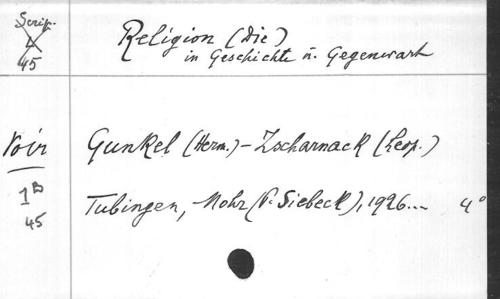 Scrip.
4
45
Religion (Die)
in Geschichte ü. Gegenwart
Voir
Gunkel (Herm.) - Zscharnack (Leop.)
1 B
45
Tubingen, Mohr (P. Siebeck), 1926... 4°